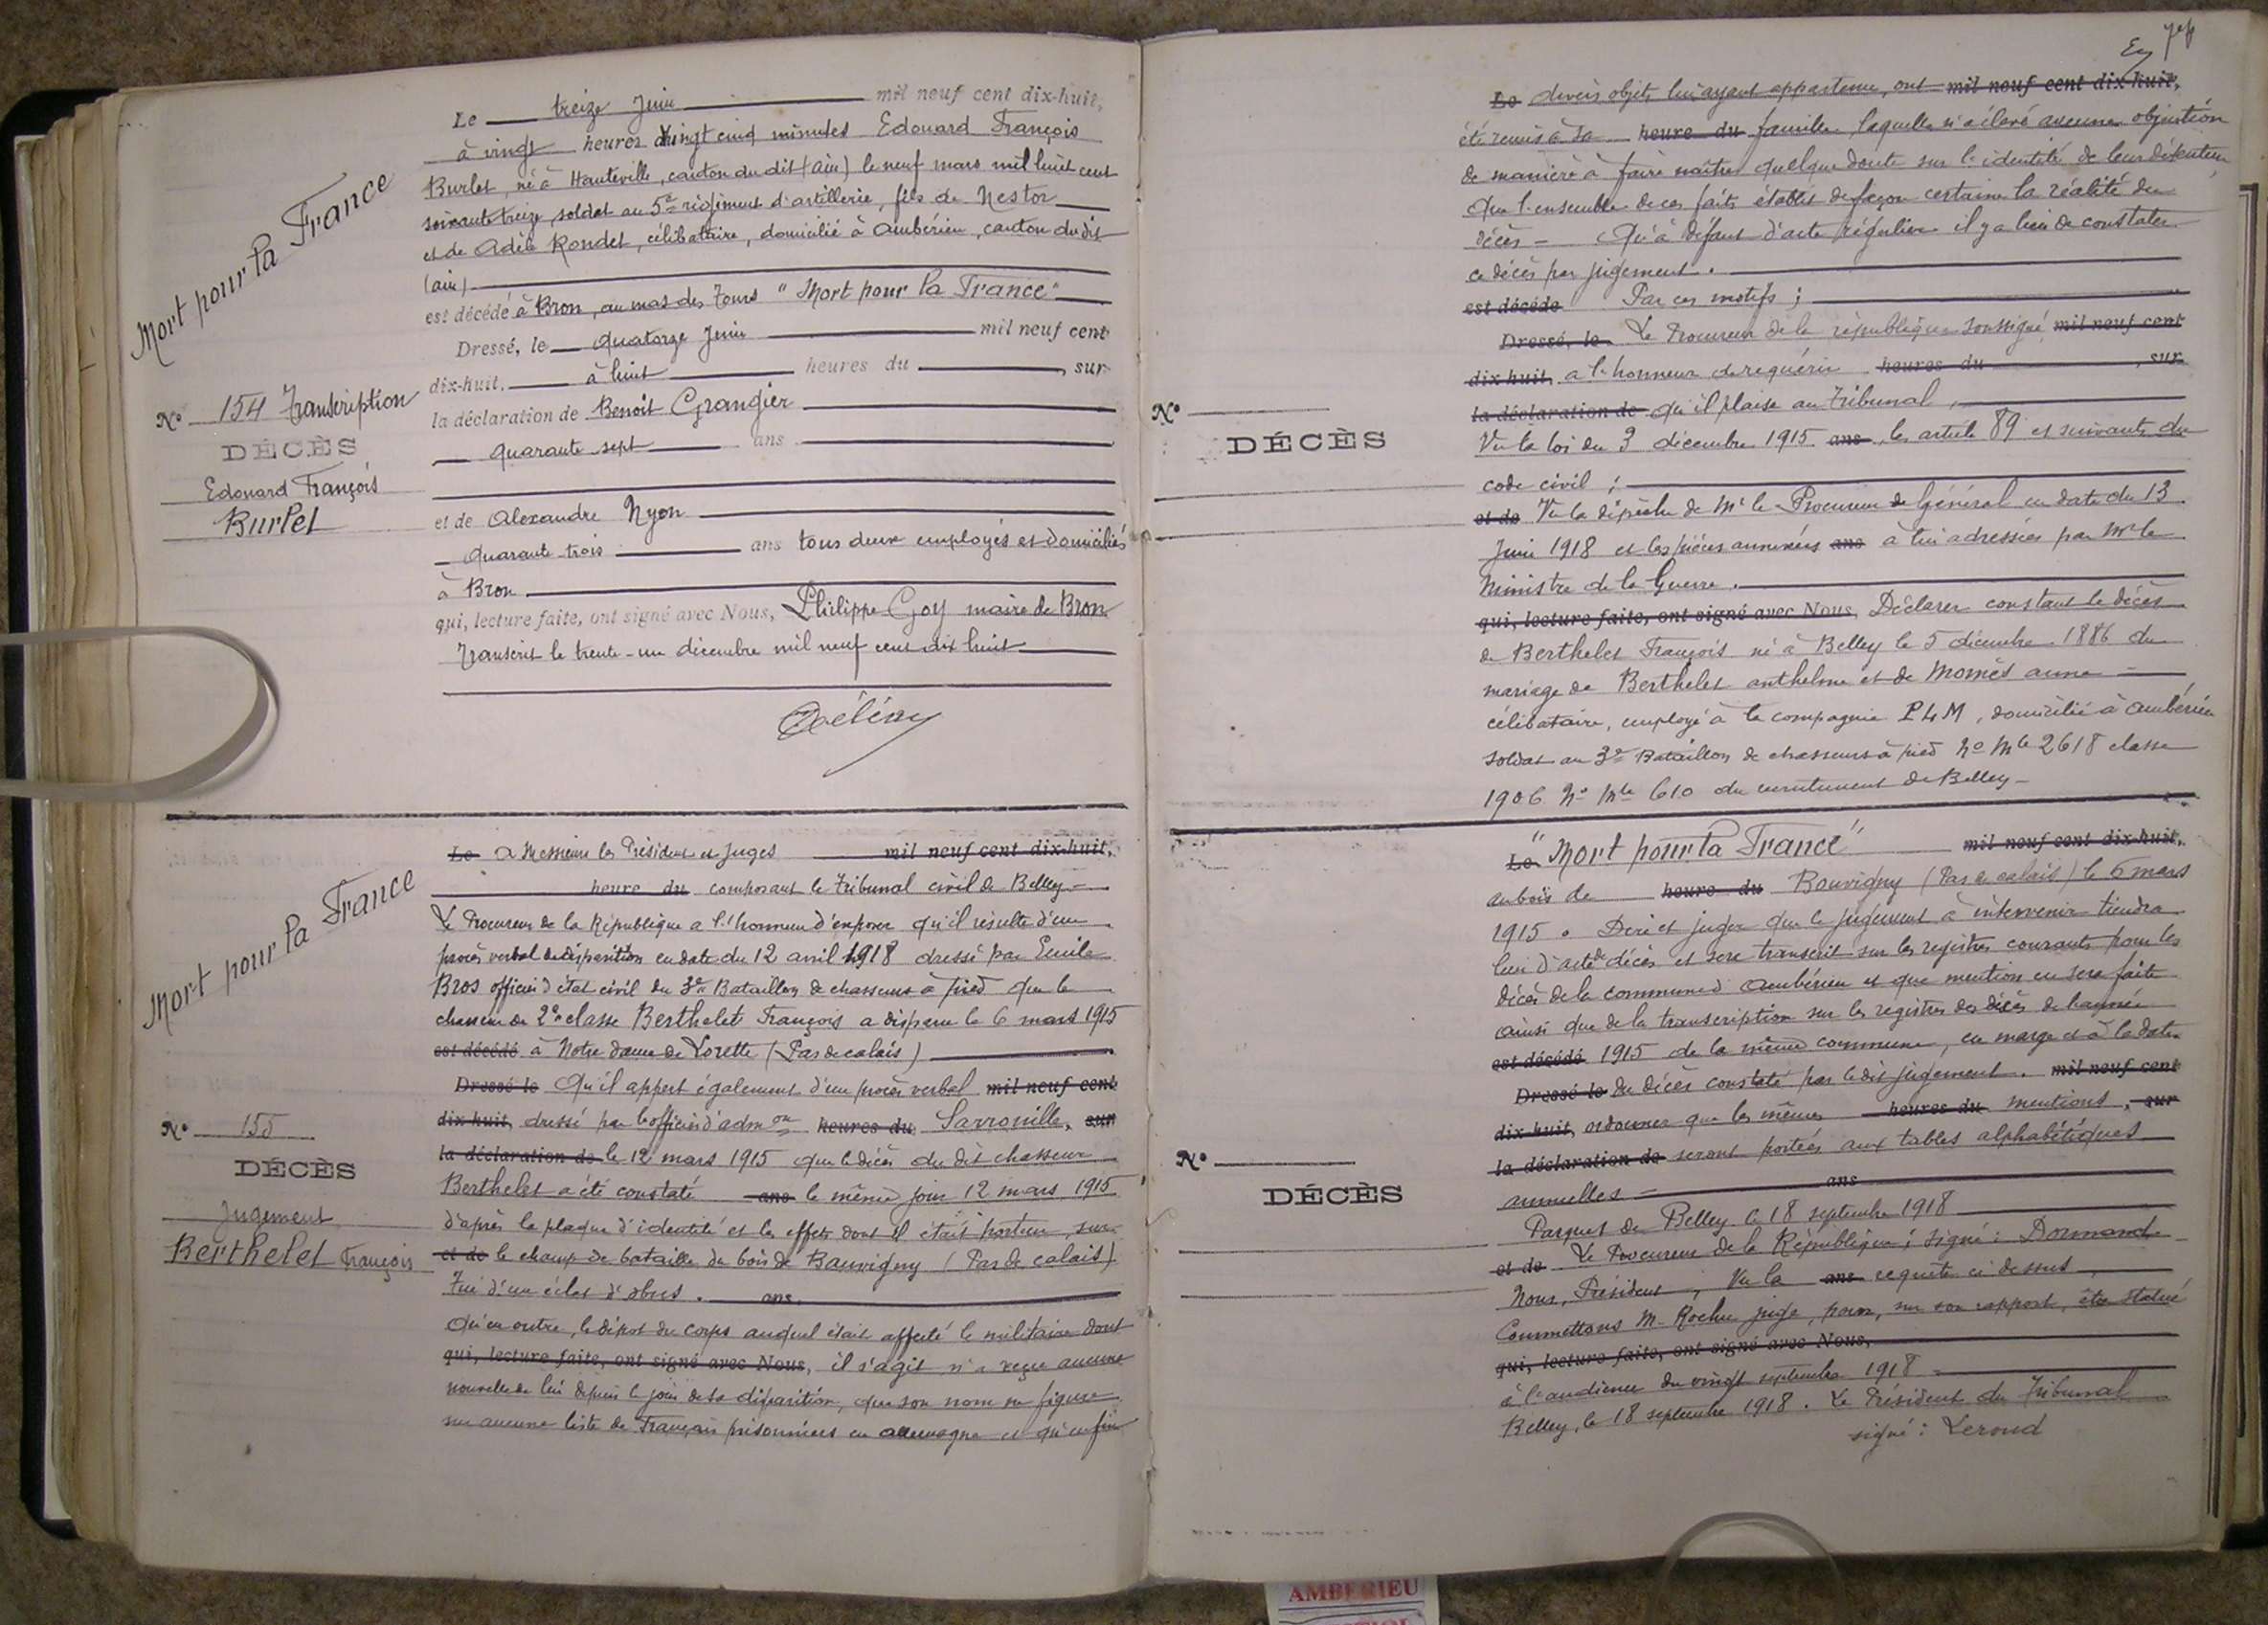 Mort pour la France
N° 154 Transcription
DÉCÈS
Edouard François
Burlet
Le treize Juin mil neuf cent dix-huit,
à vingt heures vingt cinq minutes Edouard François
Burlet, né à Hauteville, canton du dit (ain) le neuf mars mil huit cent
soixante treize, soldat au 5e régiment d'artillerie, fils de Nestor
et de Adèle Rondet, célibataire, domicilié à Ambérieu, canton du dit
(ain)
est décédé à Bron, au mas des Tours "Mort pour la France"
Dressé, le quatorze Juin mil neuf cent
dix-huit, à huit heures du , sur
la déclaration de Benoit Grangier
quarante sept ans
et de Alexandre Nyon
quarante-trois ans tous deux employés et domiciliés
à Bron
qui, lecture faite, ont signé avec Nous, Philippe Goy maire de Bron
Transcrit le trente-un décembre mil neuf cent dix huit
Mort pour la France
N° 155
DÉCÈS
Jugement
Berthelet François
Le A Messieurs les Président et Juges mil neuf cent dix-huit,
heure du composant le Tribunal civil de Belley =
Le Procureur de la République a l'honneur d'exposer qu'il résulte d'un
procès verbal de disparition en date du 12 avril 1918 dressé par Emile
Bros officier d'état civil du 3e Bataillon de chasseurs à pied que le
chasseur de 2e classe Berthelet François a disparu le 6 mars 1915
est décédé à Notre dame de Lorette (Pas de calais)
Dressé le Qu'il appert également d'un procès verbal mil neuf cent
dix-huit, dressé par l'officier d'adm on heures du Sarrouille, sur
la déclaration de le 12 mars 1915 que le décès du dit chasseur
Berthelet a été constaté ans le même jour 12 mars 1915
d'après la plaque d'identité et les effets dont il était porteur, sur
et de le champ de bataille du bois de Bouvigny (Pas de calais)
Tué d'un éclat d'obus. ans
Qu'en outre, le dépôt du corps auquel était affecté le militaire dont
qui, lecture faite, ont signé avec Nous, il s'agit n'a reçu aucune
nouvelle de lui depuis le jour de sa disparition, que son nom ne figure
sur aucune liste de Français prisonniers en allemagne et qu'enfin
Le divers objets lui ayant appartenu, ont mil neuf cent dix-huit,
été remis à sa heure du famille laquelle n'a élevé aucune objection
de manière à faire naître quelque doute sur l'identité de leur détenteur,
que l'ensemble de ces faits établit de façon certaine la réalité du
décès - Qu'à défaut d'acte régulier il y a lieu de constater
ce décès par jugement.
est décédé Par ces motifs ;
Dressé, le Le Procureur de la république soussigné mil neuf cent
dix-huit, a l'honneur de requérir heures du , sur
la déclaration de qu'il plaise au Tribunal,
N°
DÉCÈS
Vu la loi du 3 décembre 1915 ans les article 89 et suivants du
code civil ;
et de Vu la dépêche de Mr le Procureur de Général en date du 13
Juin 1918 et les pièces annexées ans à lui adressées par Mr le
Ministre de la Guerre.
qui, lecture faite, ont signé avec Nous, Déclarer constant le décès
de Berthelet François né à Belley le 5 décembre 1886 du
mariage de Berthelet anthelme et de Momès anne
célibataire, employé à la compagnie PLM, domicilié à Ambérieu
soldat au 3e Bataillon de chasseurs à pied No Mle 2618 classe
1906 No Mle 610 du recrutement de Belley -
Le "Mort pour la France" mil neuf cent dix-huit,
au bois de heure du Bouvigny (Pas de calais) le 6 mars
1915. Dire et juger que le jugement à intervenir tiendra
lieu d'acte de décès et sera transcrit sur les registres courants pour les
décès de la commune d'Ambérieu et que mention en sera faite
ainsi que de la transcription sur les registres des décès de l'année
est décédé 1915 de la même commune, en marge et à la date
Dressé le du décès constaté par le dit jugement. mil neuf cent
dix-huit, ordonner que les mêmes heures du mentions, sur
la déclaration de seront portées aux tables alphabétiques
N°
DÉCÈS
annuelles - ans
Parquet de Belley le 18 septembre 1918
et de Le Procureur de la République ; signé : Dormand
Nous, Président, Vu la ans requête ci dessus,
Commettons M. Roche juge, pour, sur son rapport, être statué
qui, lecture faite, ont signé avec Nous,
à l'audience du vingt septembre 1918
Belley, le 18 septembre 1918. Le Président du Tribunal
signé : Leroud
AMBERIEU